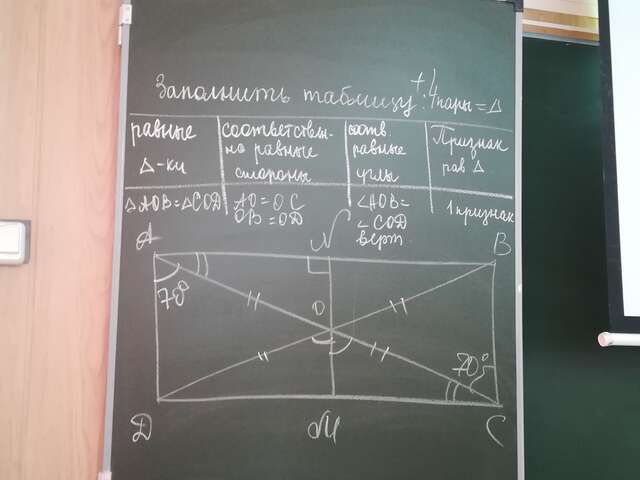 Заполнить таблицу: + 4 пары = Δ
равные Δ-ки
соответствен-но равные стороны
соотв. равные углы
Признак рав Δ
ΔAOB=ΔCOD
AO=OC
OB=OD
∠AOB=
∠COD
верт.
1 признак
A N B
70°
O
70°
D M C